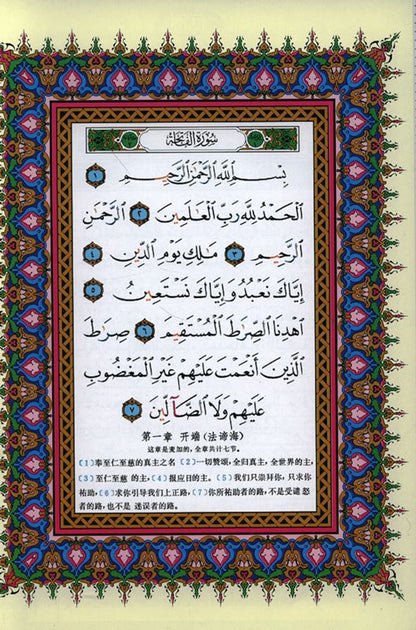 سُورَةُ الفَاتِحَةِ
بِسْمِ اللَّهِ الرَّحْمَٰنِ الرَّحِيمِ ١
الْحَمْدُ لِلَّهِ رَبِّ الْعَالَمِينَ ٢ الرَّحْمَٰنِ
الرَّحِيمِ ٣ مَالِكِ يَوْمِ الدِّينِ ٤
إِيَّاكَ نَعْبُدُ وَإِيَّاكَ نَسْتَعِينُ ٥
اهْدِنَا الصِّرَاطَ الْمُسْتَقِيمَ ٦ صِرَاطَ
الَّذِينَ أَنْعَمْتَ عَلَيْهِمْ غَيْرِ الْمَغْضُوبِ
عَلَيْهِمْ وَلَا الضَّآلِّينَ ٧
第一章 开端(法谛海)
这章是麦加的,全章共计七节。
(1)奉至仁至慈的真主之名 (2)一切赞颂,全归真主,全世界的主,
(3)至仁至慈 的主,(4)报应日的主。(5)我们只崇拜你,只求你
祐助,(6)求你引导我们上正路,(7)你所祐助者的路,不是受谴 怒
者的路,也不是 迷误者的路。